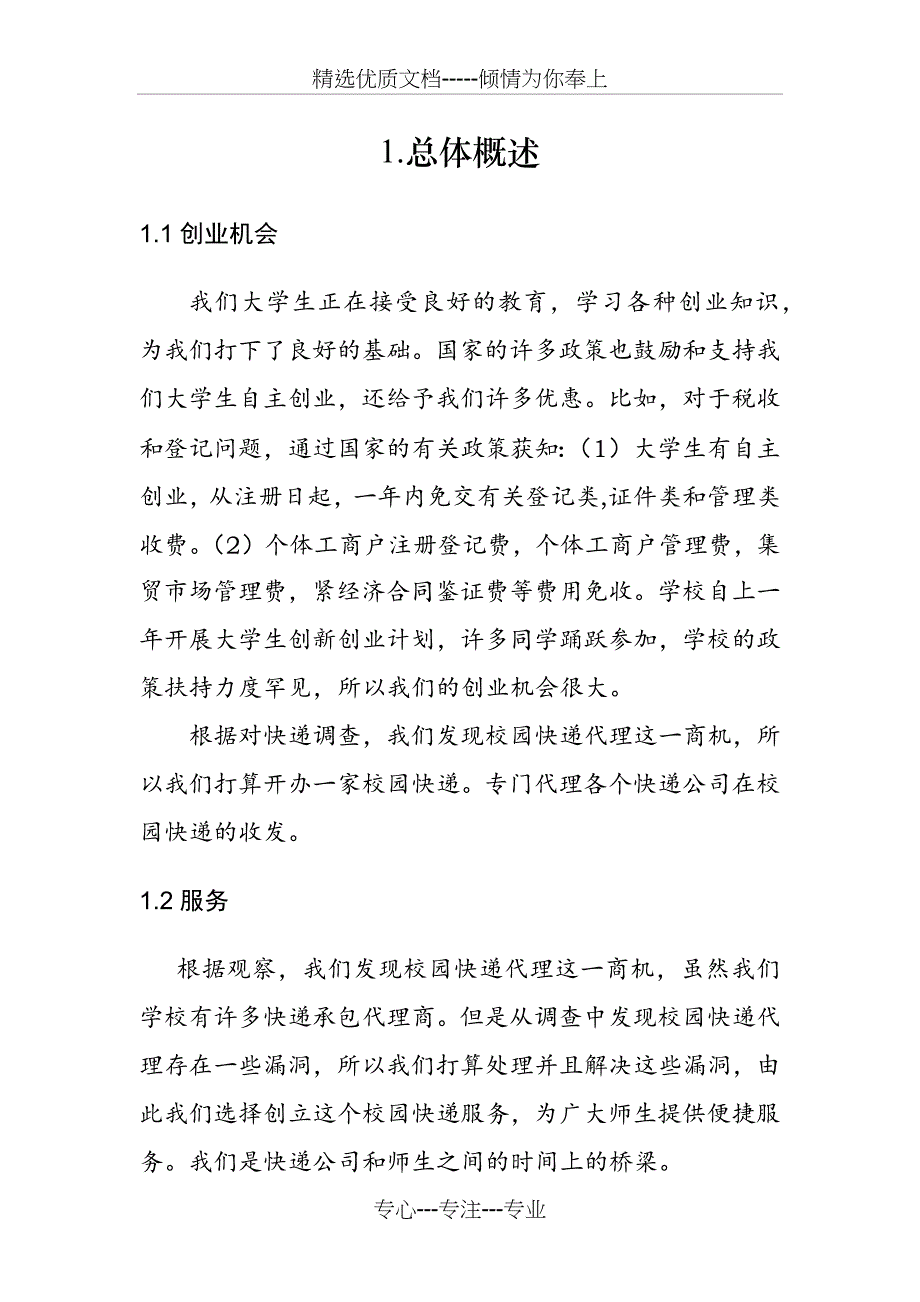 精选优质文档-----倾情为你奉上
1.总体概述
1.1 创业机会
我们大学生正在接受良好的教育，学习各种创业知识，
为我们打下了良好的基础。国家的许多政策也鼓励和支持我
们大学生自主创业，还给予我们许多优惠。比如，对于税收
和登记问题，通过国家的有关政策获知:（1）大学生有自主
创业，从注册日起，一年内免交有关登记类,证件类和管理类
收费。（2）个体工商户注册登记费，个体工商户管理费，集
贸市场管理费，紧经济合同鉴证费等费用免收。学校自上一
年开展大学生创新创业计划，许多同学踊跃参加，学校的政
策扶持力度罕见，所以我们的创业机会很大。
根据对快递调查，我们发现校园快递代理这一商机，所
以我们打算开办一家校园快递。专门代理各个快递公司在校
园快递的收发。
1.2 服务
根据观察，我们发现校园快递代理这一商机，虽然我们
学校有许多快递承包代理商。但是从调查中发现校园快递代
理存在一些漏洞，所以我们打算处理并且解决这些漏洞，由
此我们选择创立这个校园快递服务，为广大师生提供便捷服
务。我们是快递公司和师生之间的时间上的桥梁。
专心---专注---专业